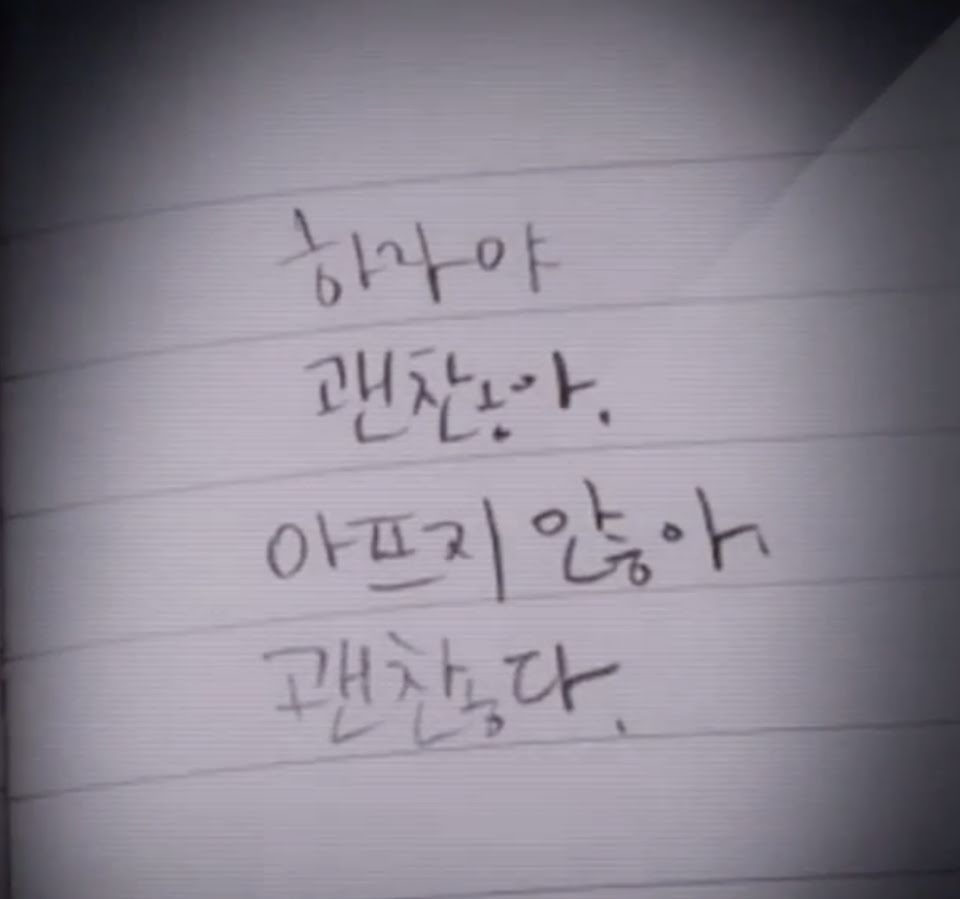 하라야
괜찮아.
아프지 않아,
괜찮다.